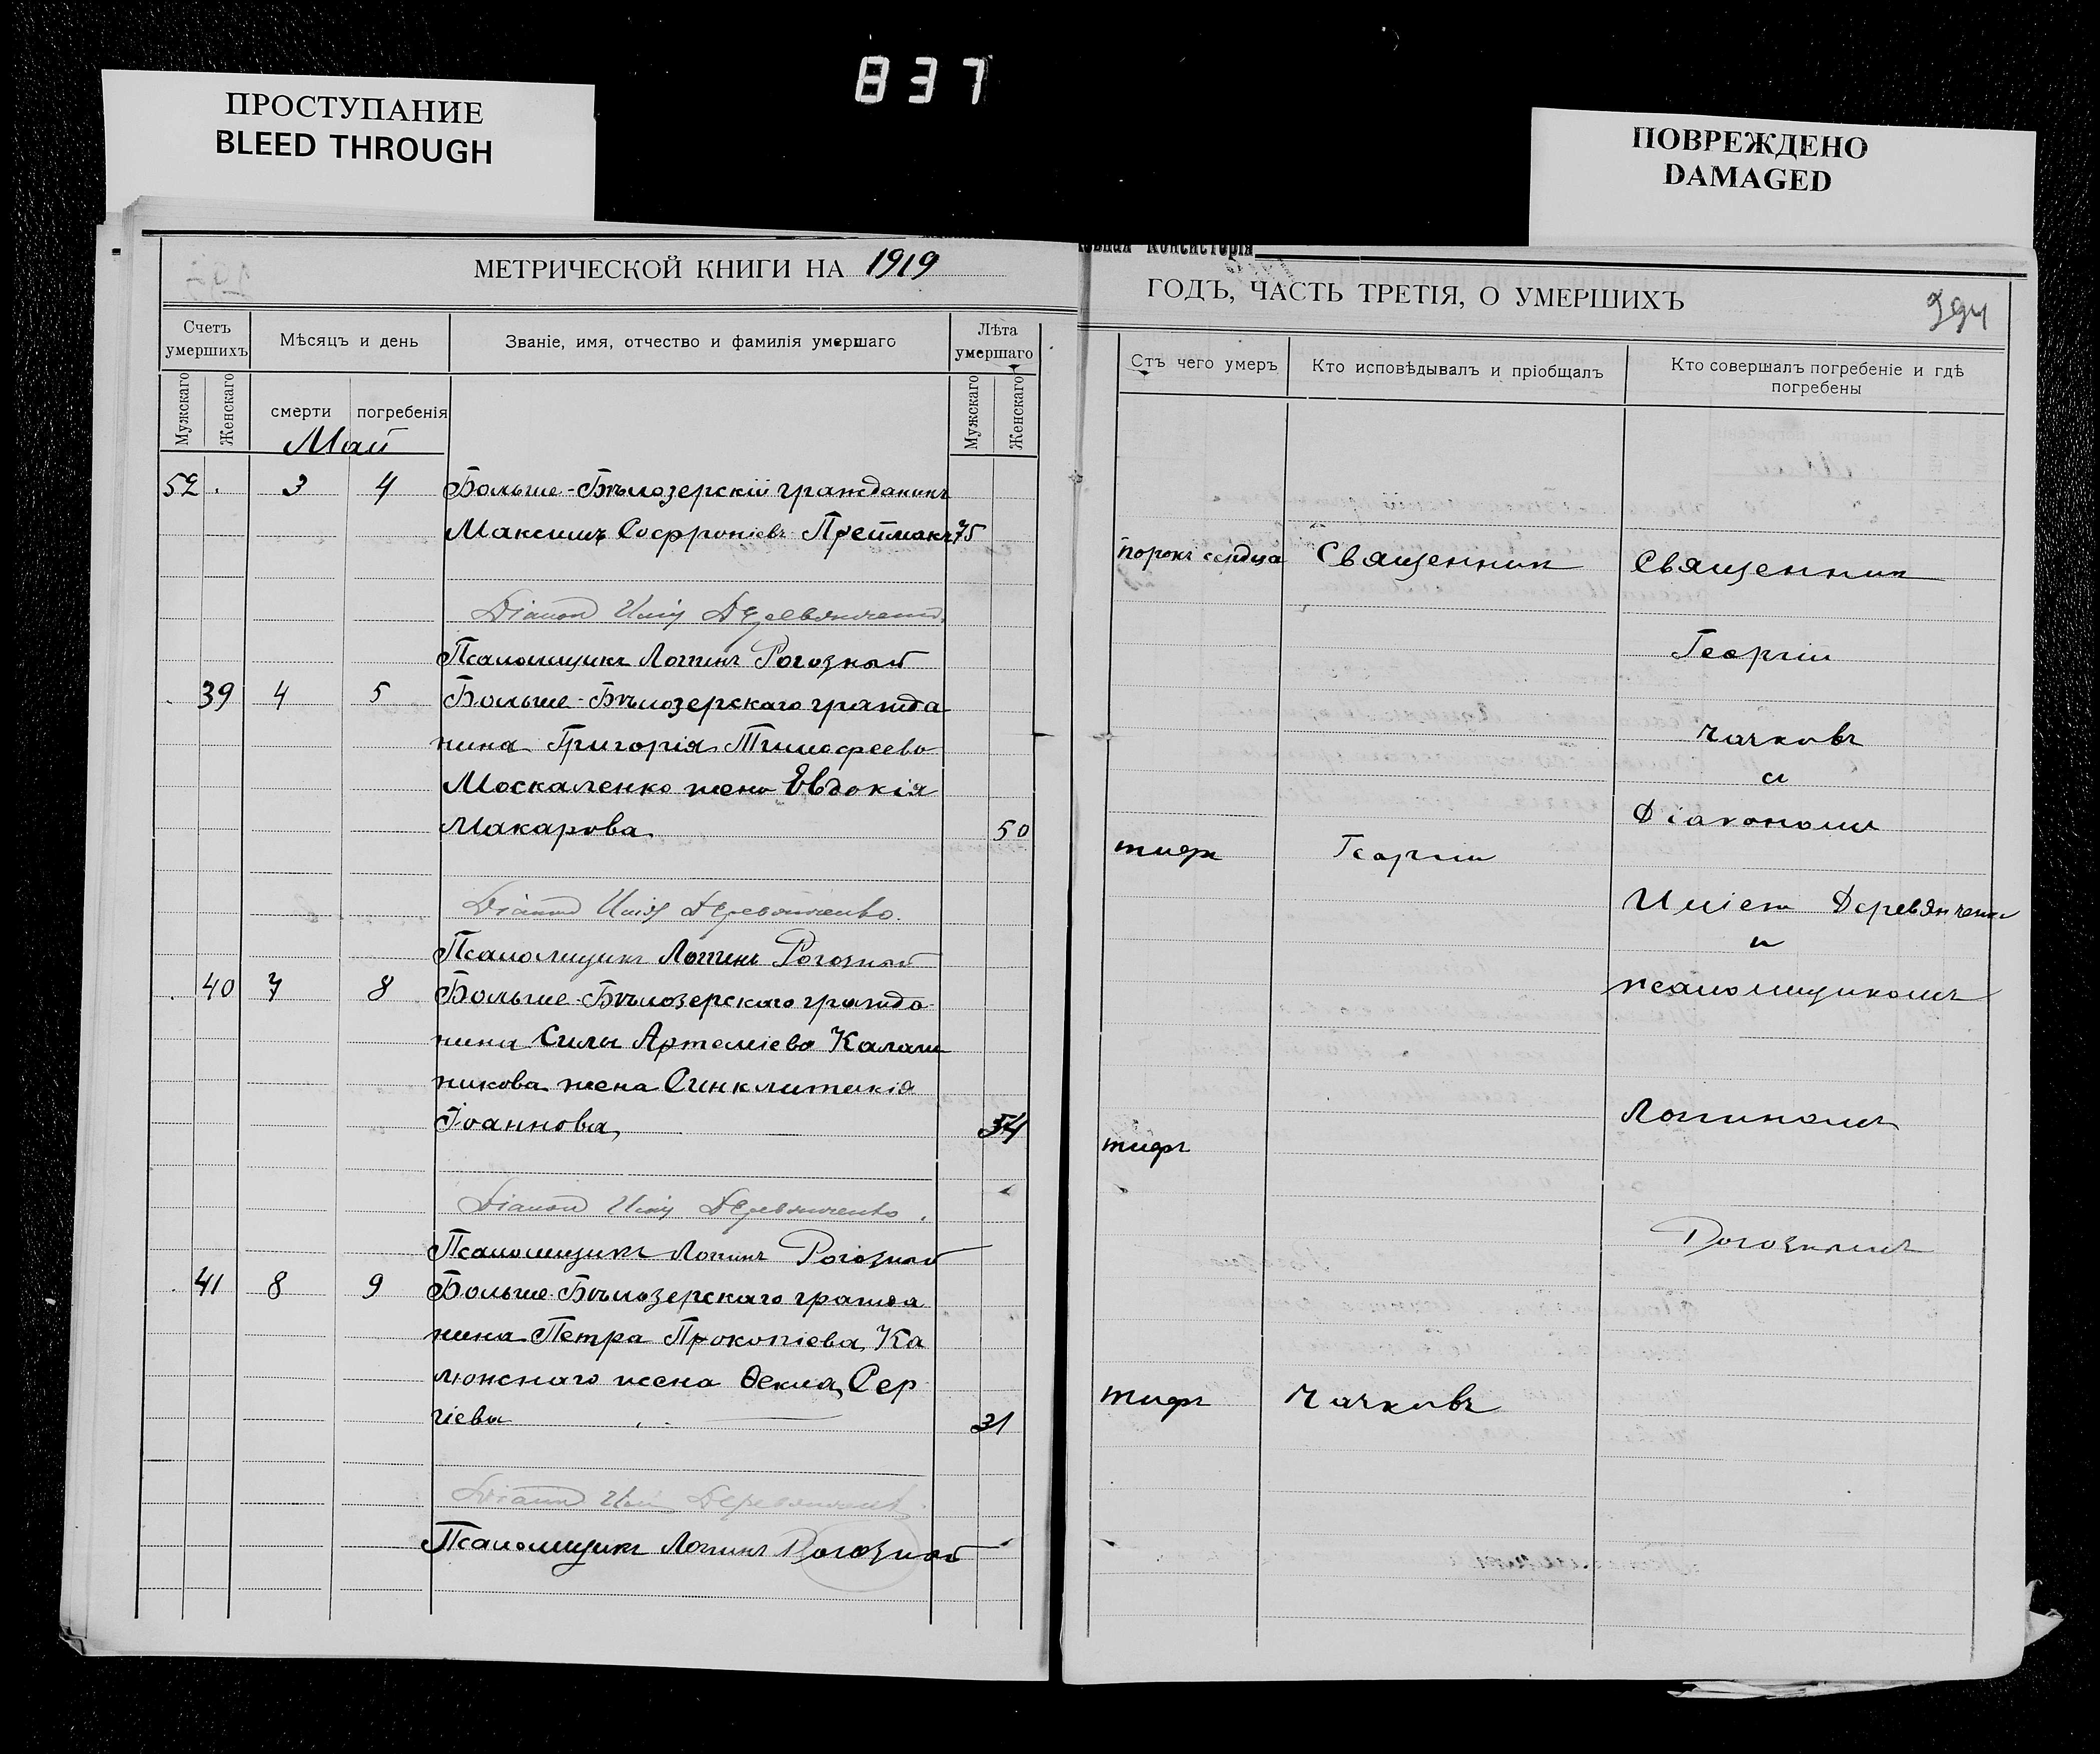 837
ПРОСТУПАНИЕ
BLEED THROUGH
ПОВРЕЖДЕНО
DAMAGED
МЕТРИЧЕСКОЙ КНИГИ НА 1919
Счетъ умершихъ
Мужскаго
Женскаго
Мѣсяцъ и день
смерти
погребенія
Званіе, имя, отчество и фамилія умершаго
Лѣта умершаго
Мужскаго
Женскаго
Май
52 3 4 Больше-Бѣлозерскій гражданинъ
Максимъ Софроніевъ Прейманъ 75
Діаконъ Илій Деревянченко
Псаломщикъ Логинъ Рогозный
39 4 5 Больше-Бѣлозерскаго гражда
нина Григорія Тимофеева
Москаленко жена Евдокія
Макарова 50
Діаконъ Илій Деревянченко.
Псаломщикъ Логинъ Рогозный
40 7 8 Больше-Бѣлозерскаго гражда
нина Силы Артеміева Калаш
никова жена Синклитикія
Іоаннова, 54
Діаконъ Илій Деревянченко.
Псаломщикъ Логинъ Рогозный
41 8 9 Больше-Бѣлозерскаго гражда
нина Петра Прокопіева Ка
люжнаго жена Ѳекла Сер
гіева 31
Діаконъ Илій Деревянченко
Псаломщикъ Логинъ Рогозный
Консисторія
ГОДЪ, ЧАСТЬ ТРЕТІЯ, О УМЕРШИХЪ
294
Отъ чего умеръ
Кто исповѣдывалъ и пріобщалъ
Кто совершалъ погребеніе и гдѣ
погребены
порокъ сердца Священник Священник
Георгій
Чачковъ
и
Діакономъ
тифъ Георгий
Иліем Деревянченко
и
псаломщикомъ
Логиномъ
тифъ
Рогознымъ
тифъ Чачковъ